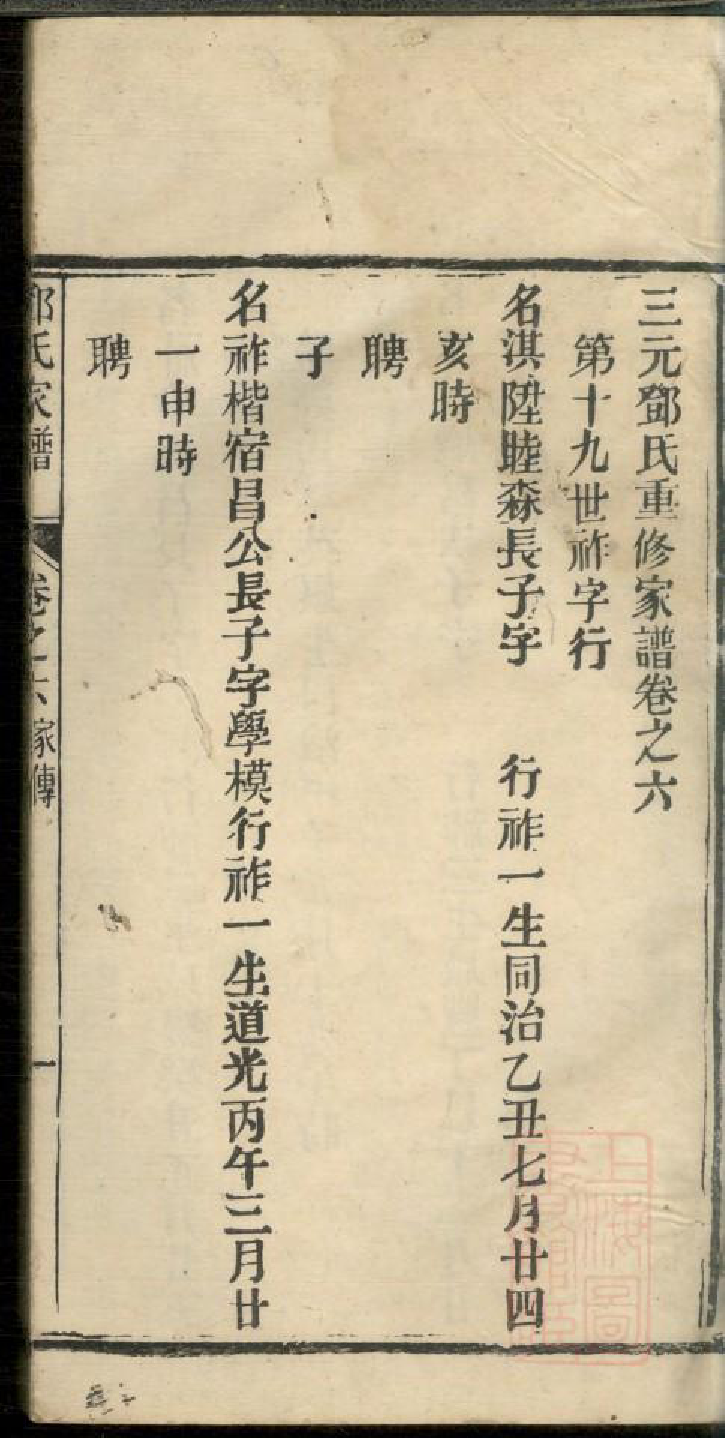 三元鄧氏重修家譜卷之六
第十九世祚字行
名淇陞睦森長子字　行祚一生同治乙丑七月廿四
亥時
聘
子
名祚楷宿昌公長子字學模行祚一生道光丙午三月廿
一申時
聘
鄧氏家譜　卷之六　家傳　一
上海圖書館藏